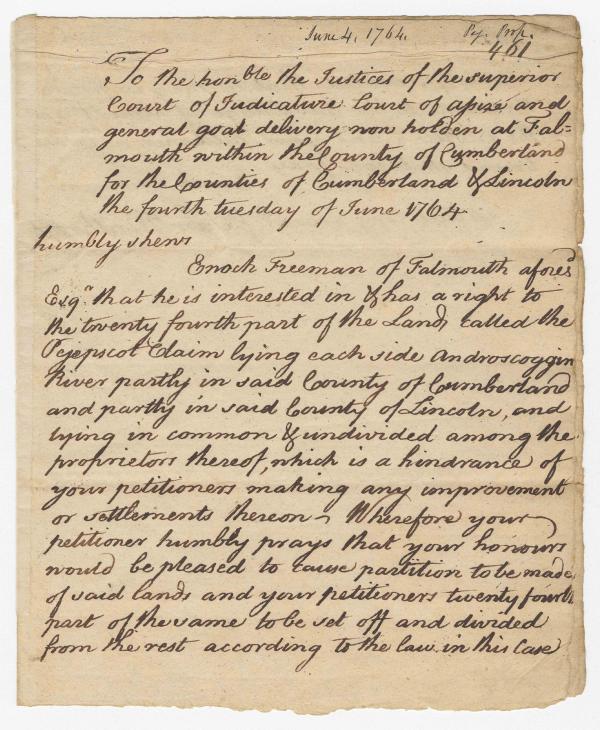 June 4, 1764. Pej. Prop.
461
To the honble the Justices of the superior
Court of Judicature Court of assize and
general goal delivery now holden at Fal=
mouth within the County of Cumberland
for the Counties of Cumberland & Lincoln
the fourth tuesday of June 1764
humbly shews
Enoch Freeman of Falmouth aforesd
Esqr. that he is interested in & has a right to
the twenty fourth part of the Lands called the
Pejepscot Claim lying each side Androscoggin
River partly in said County of Cumberland
and partly in said County of Lincoln, and
lying in common & undivided among the
proprietors thereof, which is a hindrance of
your petitioners making any improvement
or settlements thereon Wherefore your
petitioner humbly prays that your honours
would be pleased to cause partition to be made
of said lands and your petitioners twenty fourth
part of the same to be set off and divided
from the rest according to the law in this Case